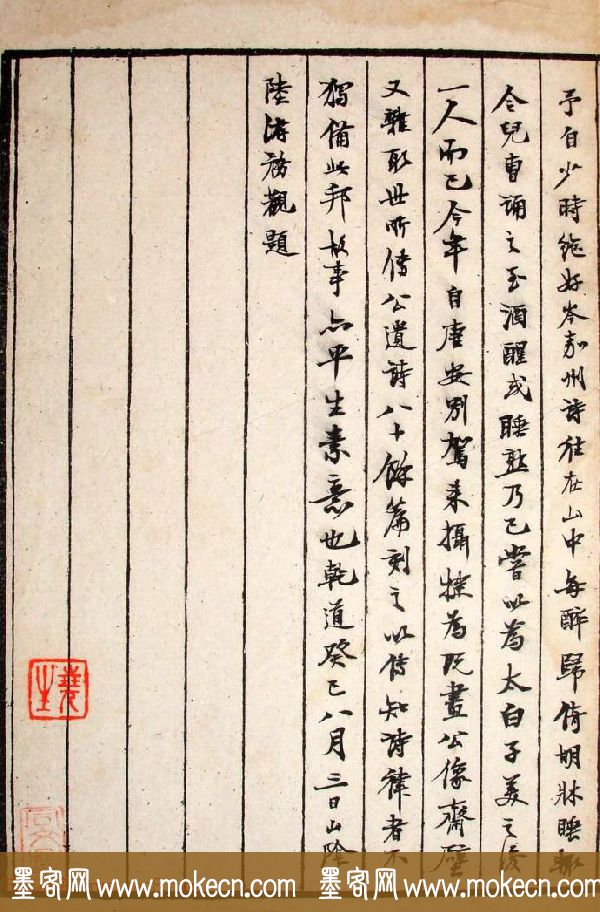 予自少時絕好岑嘉州詩往在山中每醉歸倚胡牀睡輒
令兒曹誦之至酒醒或睡熟乃已嘗以為太白子美之後
一人而已今年自唐安別駕來攝犍為既畫公像齋壁
又雜取世所傳公遺詩八十餘篇刻之以傳知詩律者不
獨備此邦故事亦平生素意也乾道癸巳八月三日山陰
陸游務觀題
墨客网 www.mokecn.com 墨客网 www.mokecn.com